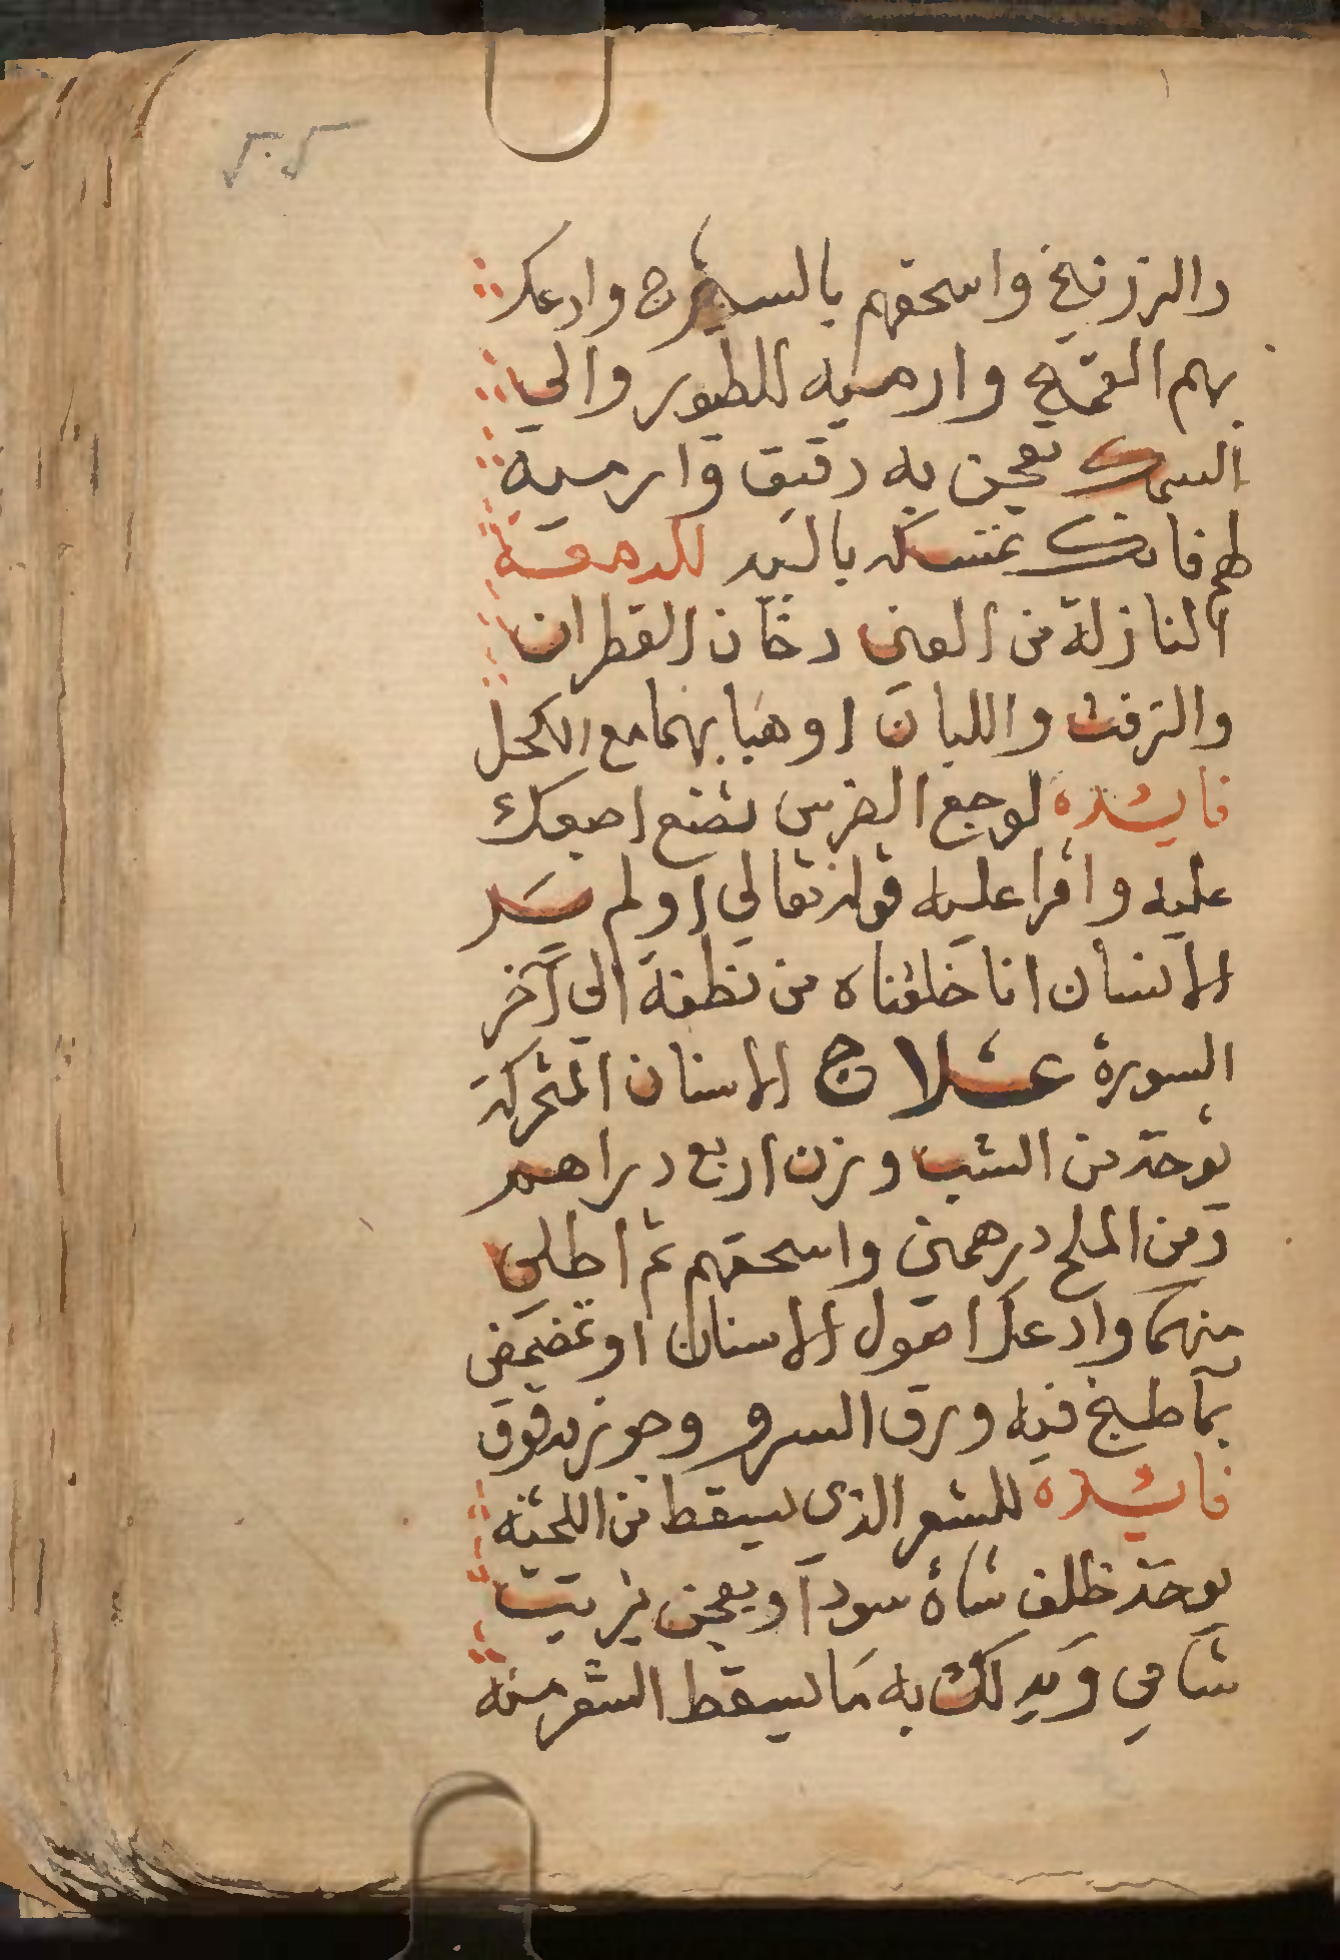 ٢٠٢
والزرنيخ واسحقهم بالسيرج وادعك
بهم القمح وارميه للطيور والي
السمك تعجن به دقيق وارميه
لهم فانك تمسكه باليد للدمعة
النازلة من العين دخان القطران
والزفت واللبان او هبابهما مع الكحل
فايده لوجع الضرس تضع اصبعك
عليه واقرا عليه قوله تعالي اولم ير
الانسان انا خلقناه من نطفة الي آخر
السورة علاج الاسنان المتحركة
يوخذ من الشب وزن اربع دراهم
ومن الملح درهمين واسحقهم ثم اطلي
منهما وادعك اصول الاسنان او تمضمض
بمآ طبخ فيه ورق السرو وجوز مدقوق
فايده للشعر الذي يسقط من اللحية
يوخذ ظلف شاة سودآ ويعجن بزيت
شامي ويدلك به ما يسقط الشعر منه